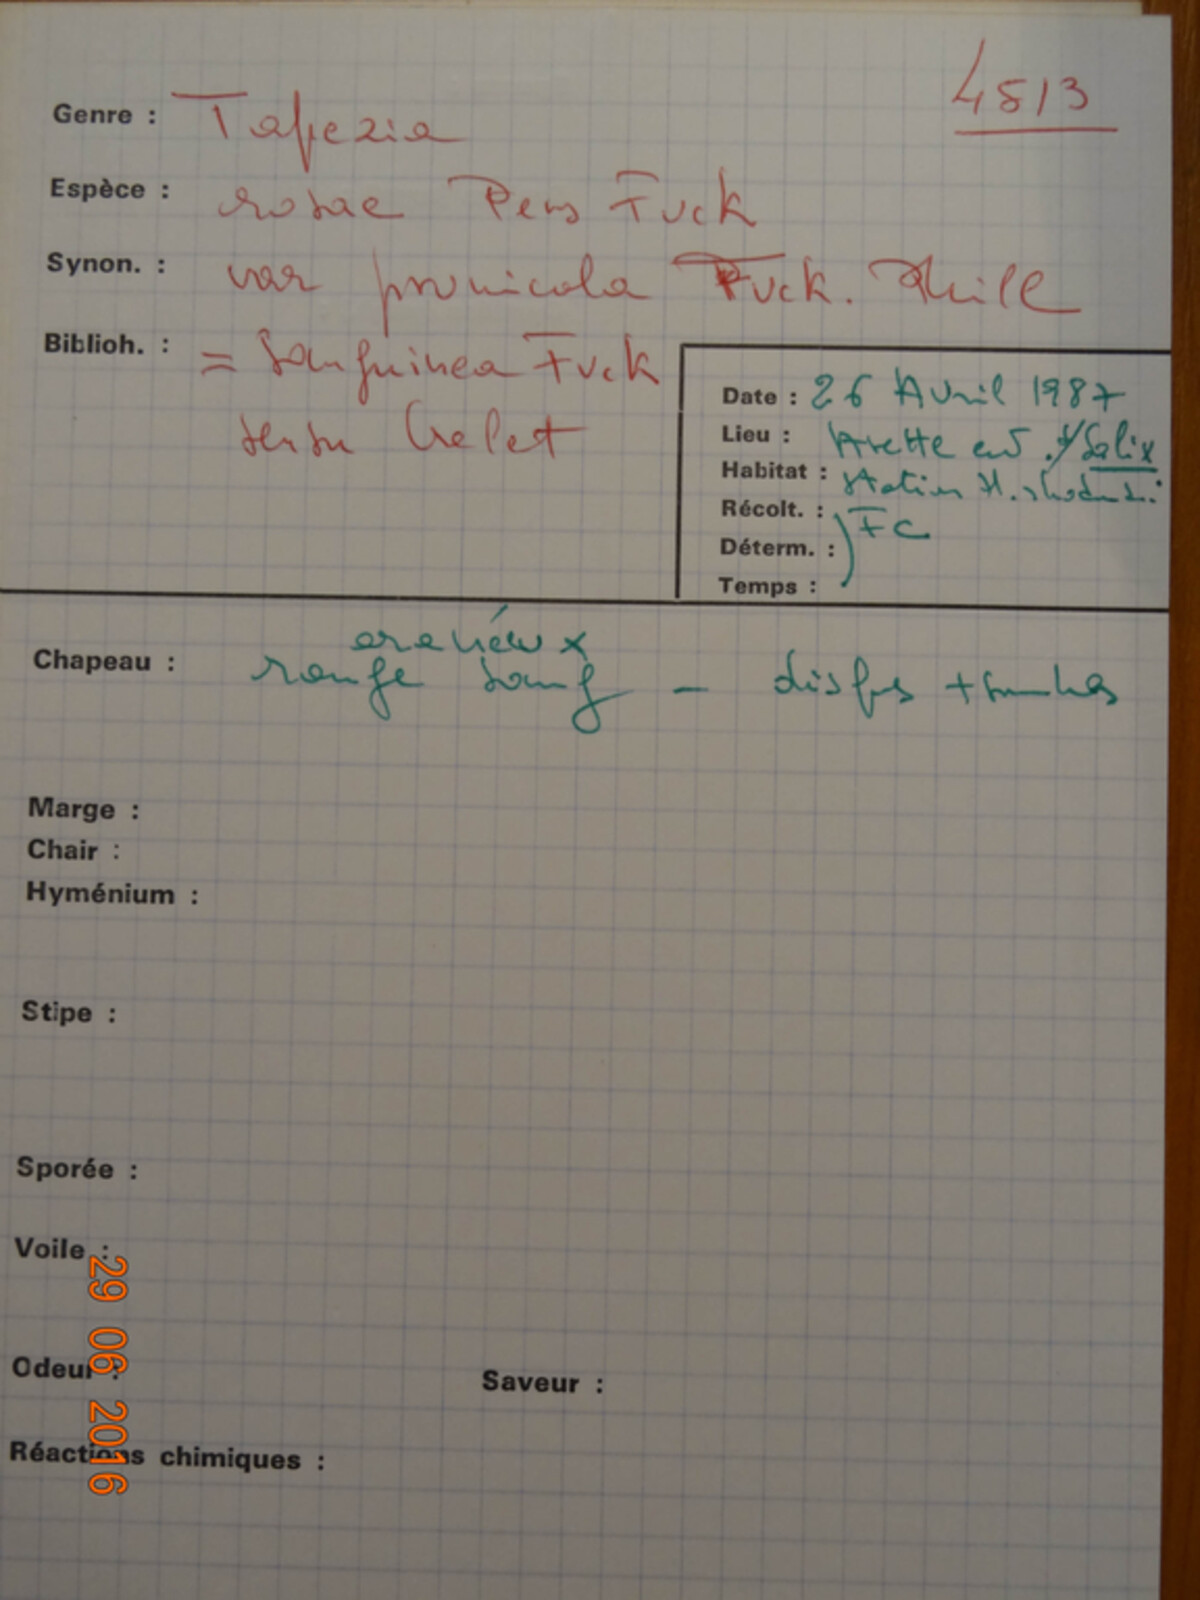 4513
Genre : Tapezia
Espèce : rosae Pers Fuck
Synon. : var prunicola Fuck. Phill
Biblioh. : = Sanguinea Fuck
sensu Grelet
Date : 26 Avril 1987
Lieu : Arette env . s/ Salix
Habitat : Station H. rhododendri
Récolt. : FC
Déterm. :
Temps :
aranéeux
Chapeau : rouge sang —
Marge :
Chair :
Hyménium :
Stipe :
Sporée :
Voile :
Odeur :
Saveur :
Réactions chimiques :
29 06 2016